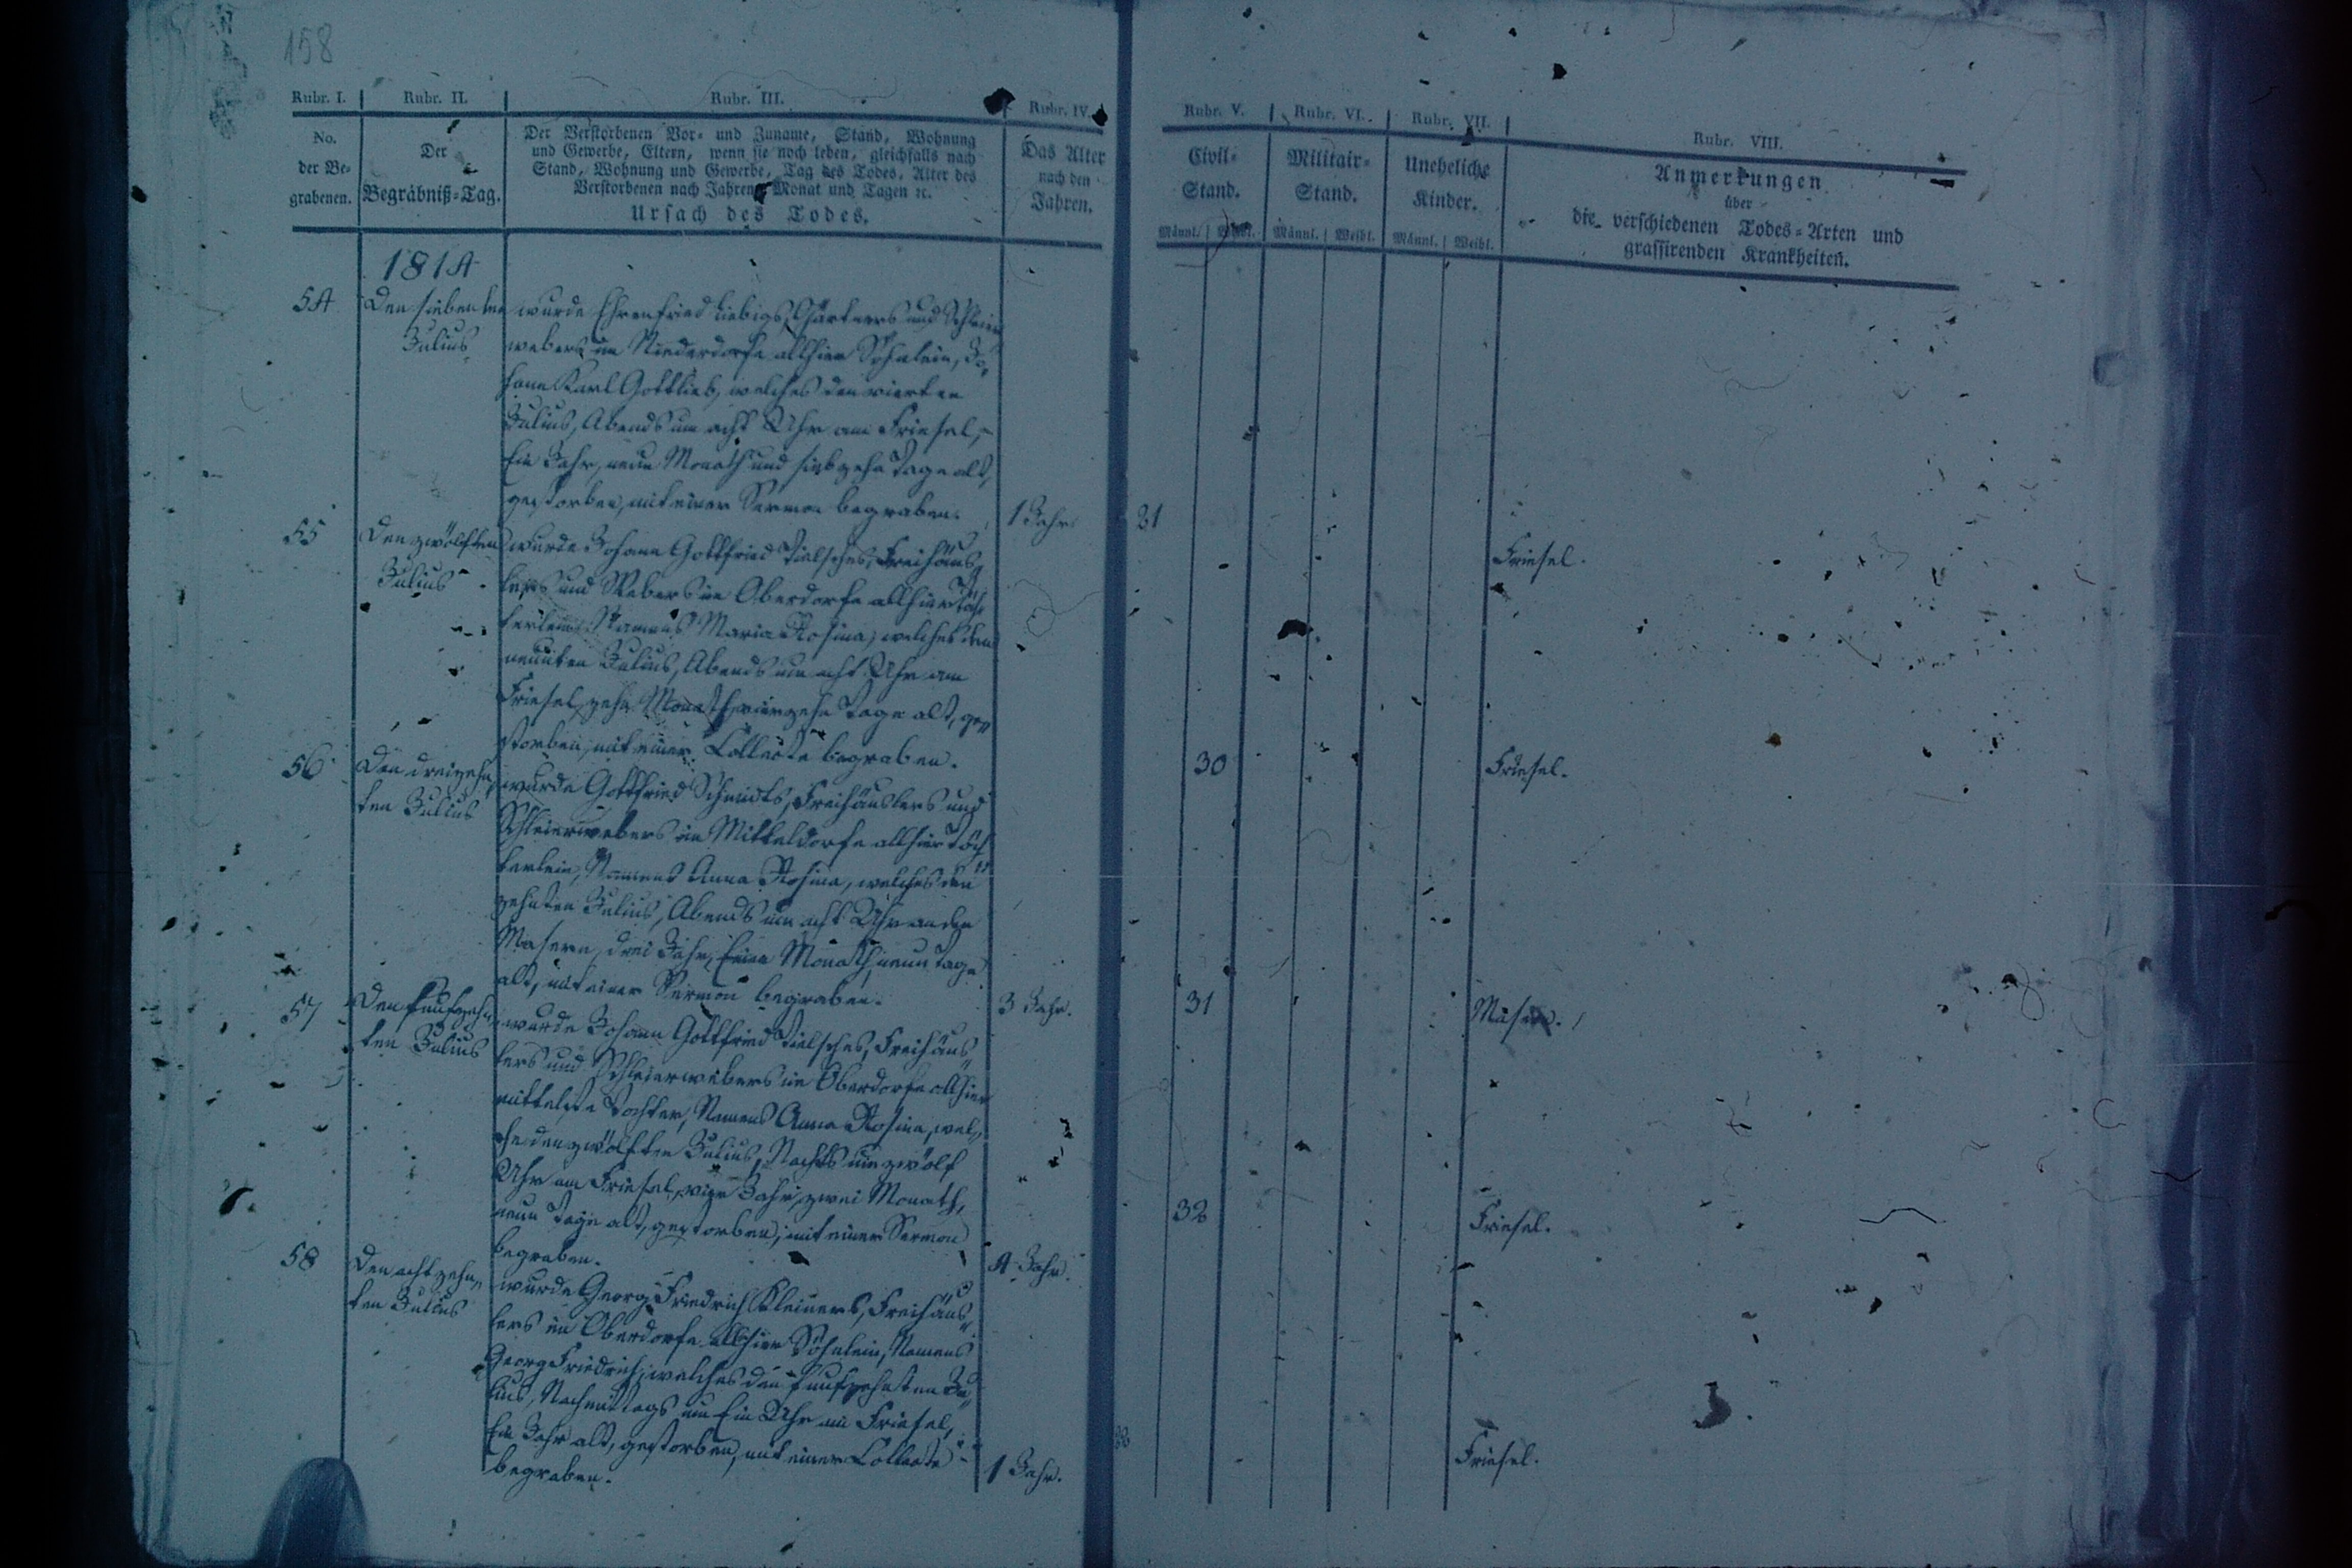 158
Rubr. I. Rubr. II. Rubr. III. Rubr. IV. Rubr. V. Rubr. VI. Rubr. VII. Rubr. VIII.
No. der Be- grabenen.
Der Begräbniß-Tag.
Der Verstorbenen Vor- und Zuname, Stand, Wohnung
und Gewerbe, Eltern, wenn sie noch leben, gleichfalls nach
Stand, Wohnung und Gewerbe, Tag des Todes, Alter des
Verstorbenen nach Jahren, Monat und Tagen ꝛc.
Ursach des Todes.
Das Alter
nach den
Jahren.
Civil-
Stand.
Männl. Weibl.
Militair-
Stand.
Männl. Weibl.
Uneheliche
Kinder.
Männl. Weibl.
Anmerkungen
über
die verschiedenen Todes-Arten und
grassirenden Krankheiten.
1814
54 Den siebenten
Julius
wurde Ehrenfried Liebigs, Gärtners und Schleier
webers im Niederdorfe allhier Söhnlein, Jo-
hann Karl Gottlieb, welches den vierten
Julius, Abends um acht Uhr am Friesel,
Ein Jahr, neun Monath und siebzehn Tage alt,
gestorben, mit einer Sermon begraben. 1 Jahr. 21 Friesel.
55 Den zwölften
Julius
wurde Johann Gottfried Tielsches, Freihäus-
lers und Webers im Oberdorfe allhier Töch-
terlein, Namens Maria Rosina, welches den
neunten Julius, Abends um acht Uhr am
Friesel, zehn Monath, vierzehn Tage alt, ge-
storben, mit einer Collecte begraben. 30 Friesel.
56 Den dreizehn-
ten Julius
wurde Gottfried Schmidts, Freihäuslers und
Schleierwebers im Mitteldorfe allhier Töch-
terlein, Namens Anna Rosina, welches den
zehnten Julius, Abends um acht Uhr an den
Masern, drei Jahr, Einen Monath, neun Tage
alt, mit einer Sermon begraben. 3 Jahr. 31 Masern.
57 Den funfzehn-
ten Julius
wurde Johann Gottfried Tielsches, Freihäus-
lers und Schleierwebers im Oberdorfe allhier
mittelste Tochter, Namens Anna Rosina, wel-
che den zwölften Julius, Nachts um zwölf
Uhr am Friesel, vier Jahr, zwei Monath,
neun Tage alt, gestorben, mit einer Sermon
begraben. 4 Jahr. 32 Friesel.
58 Den achtzehn-
ten Julius
wurde Georg Friedrich Kleiners, Freihäus-
lers im Oberdorfe allhier Söhnlein, Namens
Georg Friedrich, welches den funfzehnten Ju-
lius, Nachmittags um Ein Uhr am Friesel,
Ein Jahr alt, gestorben, mit einer Collecte
begraben. 1 Jahr. 22 Friesel.